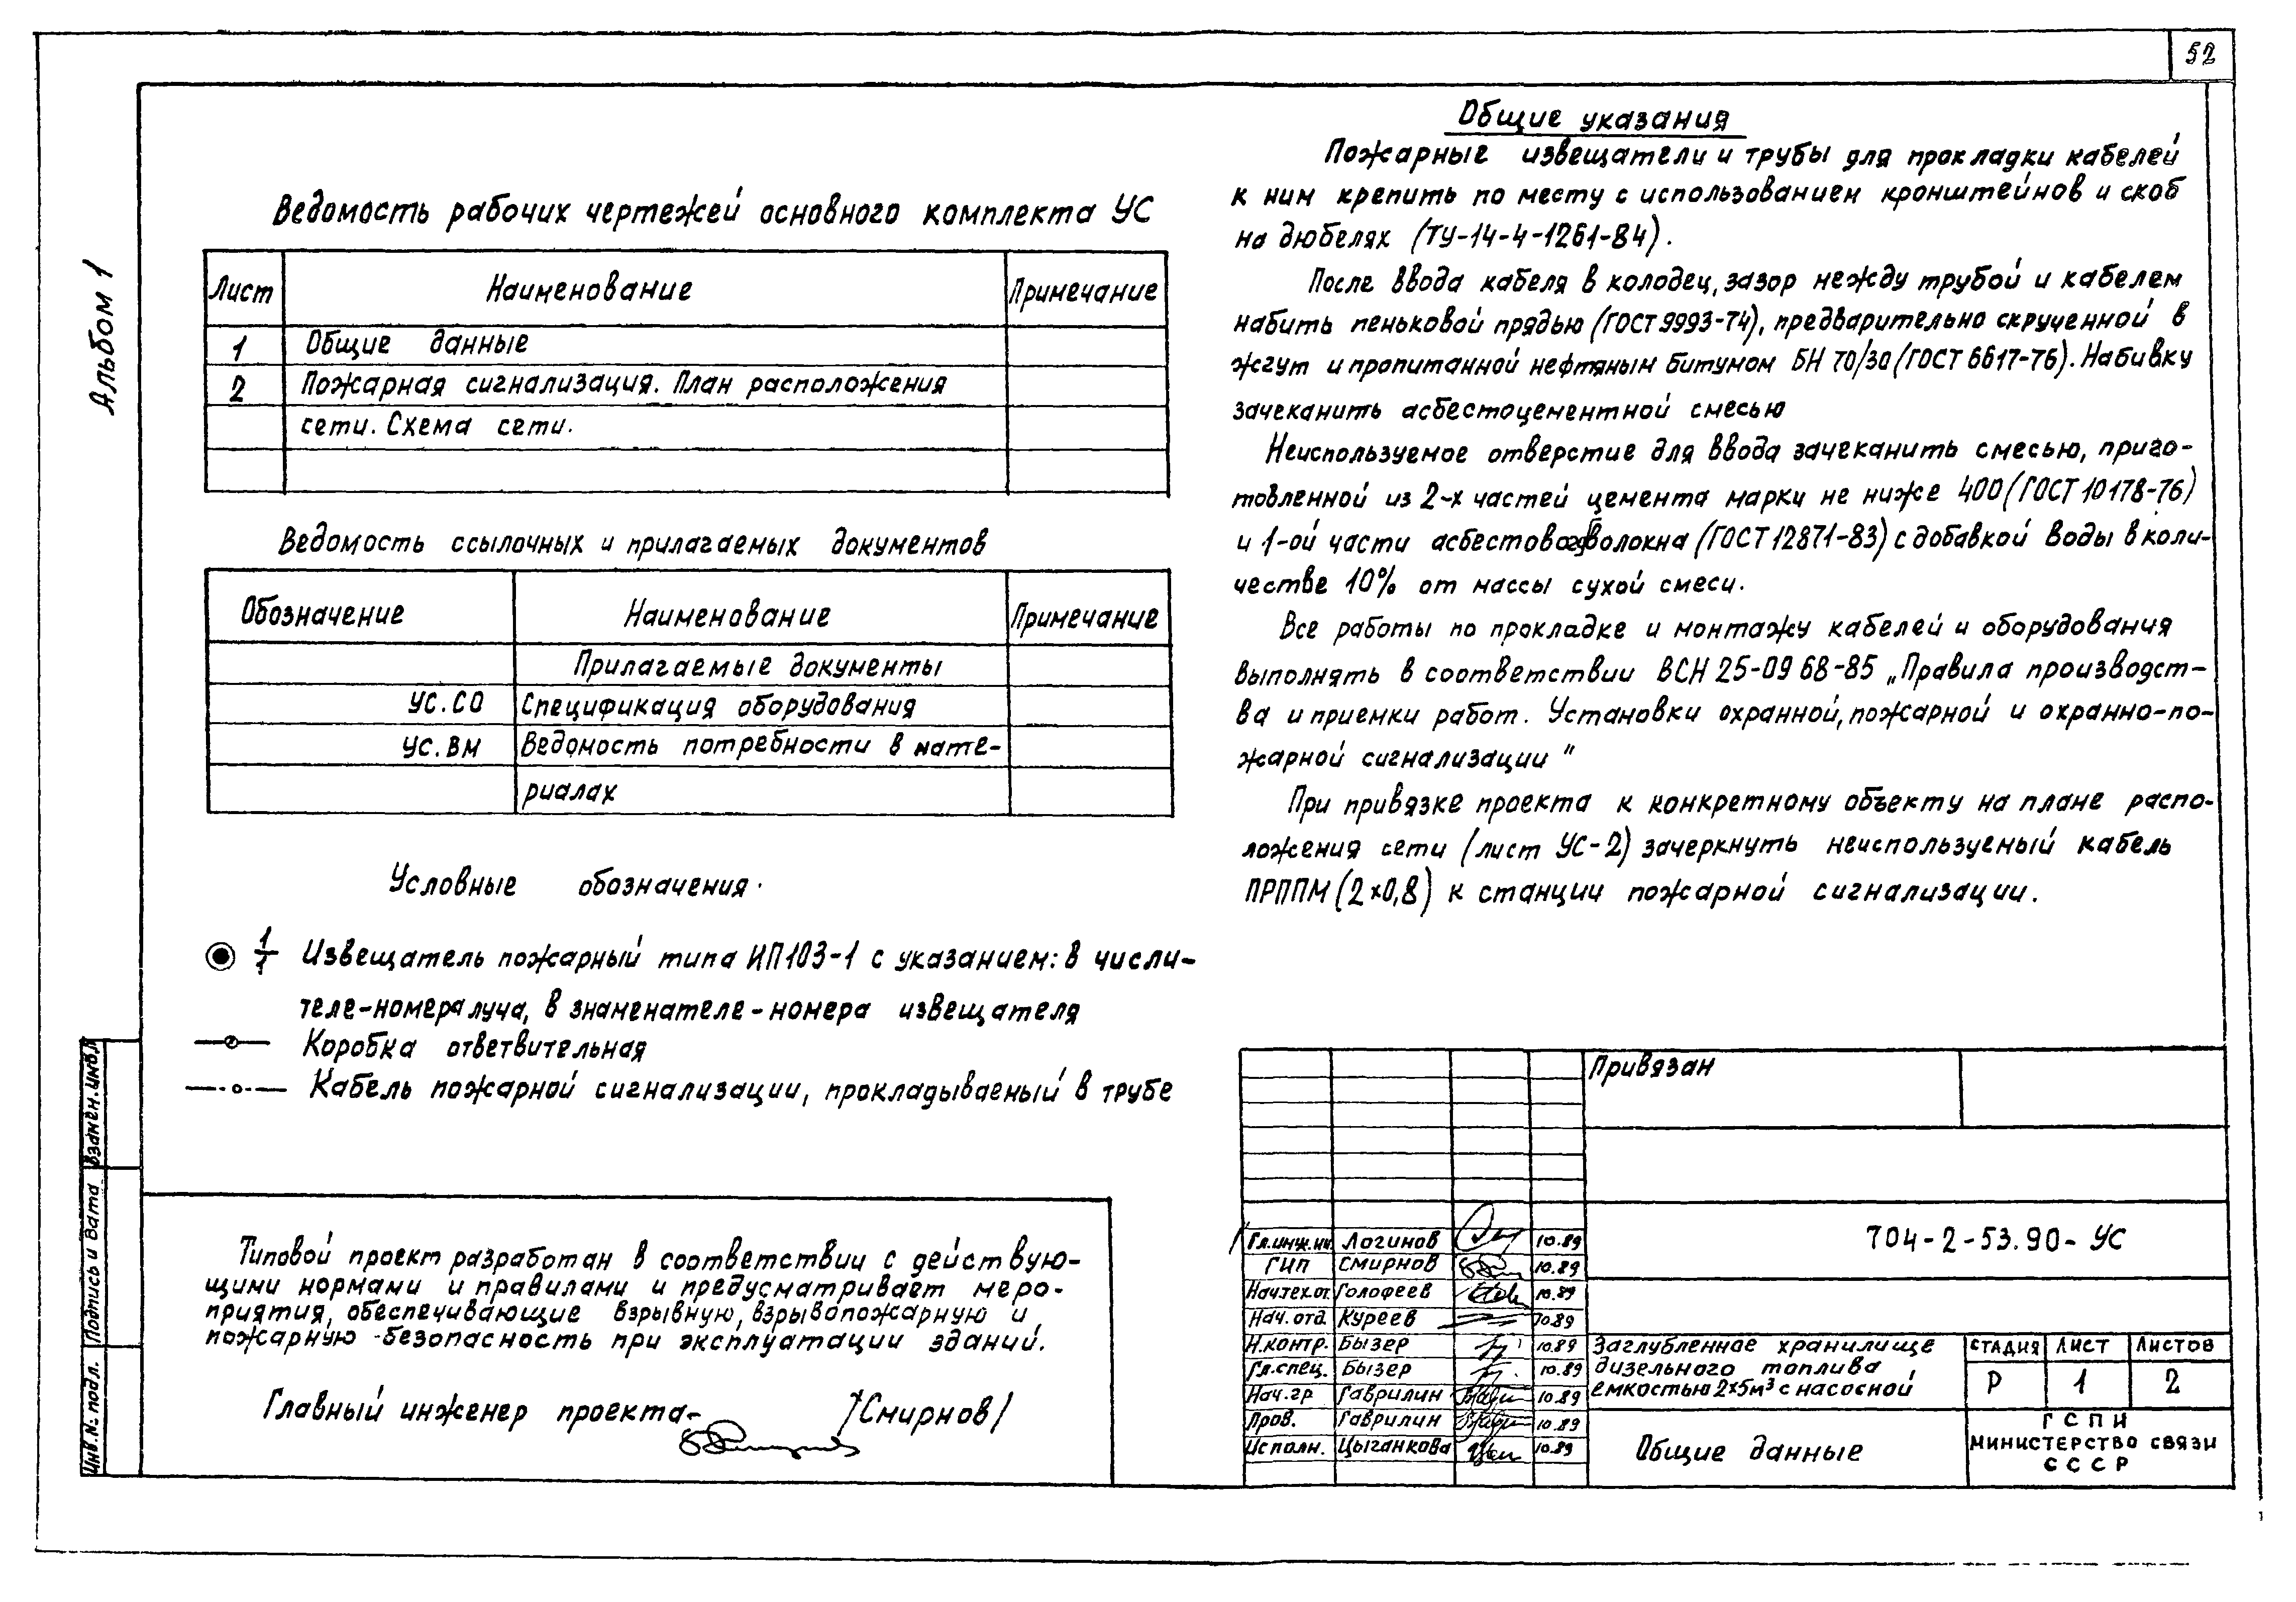 52
Альбом 1
Ведомость рабочих чертежей основного комплекта УС
Лист Наименование Примечание
1 Общие данные
2 Пожарная сигнализация. План расположения
сети. Схема сети.
Ведомость ссылочных и прилагаемых документов
Обозначение Наименование Примечание
Прилагаемые документы
УС.СО Спецификация оборудования
УС.ВМ Ведомость потребности в мате-
риалах
Условные обозначения.
1/1 Извещатель пожарный типа ИП103-1 с указанием: в числи-
теле-номера луча, в знаменателе-номера извещателя
Коробка ответвительная
Кабель пожарной сигнализации, прокладываемый в трубе
Типовой проект разработан в соответствии с действую-
щими нормами и правилами и предусматривает меро-
приятия, обеспечивающие взрывную, взрывопожарную и
пожарную безопасность при эксплуатации зданий.
Главный инженер проекта- /Смирнов/
Общие указания
Пожарные извещатели и трубы для прокладки кабелей
к ним крепить по месту с использованием кронштейнов и скоб
на дюбелях (ТУ-14-4-1261-84).
После ввода кабеля в колодец, зазор между трубой и кабелем
набить пеньковой прядью (ГОСТ 9993-74), предварительно скрученной в
жгут и пропитанной нефтяным битумом БН 70/30 (ГОСТ 6617-76). Набивку
зачеканить асбестоцементной смесью
Неиспользуемое отверстие для ввода зачеканить смесью, приго-
товленной из 2-х частей цемента марки не ниже 400 (ГОСТ 10178-76)
и 1-ой части асбестового волокна (ГОСТ 12871-83) с добавкой воды в коли-
честве 10% от массы сухой смеси.
Все работы по прокладке и монтажу кабелей и оборудования
выполнять в соответствии ВСН 25-09 68-85 „Правила производст-
ва и приемки работ. Установки охранной, пожарной и охранно-по-
жарной сигнализации"
При привязке проекта к конкретному объекту на плане распо-
ложения сети (лист УС-2) зачеркнуть неиспользуемый кабель
ПРППМ (2х0,8) к станции пожарной сигнализации.
Привязан
704-2-53.90-УС
Гл.инж.ин Логинов 10.89
ГИП Смирнов 10.89
Нач.тех.от. Голофеев 10.89
Нач.отд. Куреев 10.89
Н.контр. Бызер 10.89
Гл.спец. Бызер 10.89
Нач.гр Гаврилин 10.89
Пров. Гаврилин 10.89
Исполн. Цыганкова 10.89
Заглубленное хранилище
дизельного топлива
емкостью 2х5м³ с насосной
Стадия Лист Листов
Р 1 2
Общие данные
ГСПИ
Министерство связи
СССР
Взамен.инв.
Подпись и дата
Инв.№ подл.